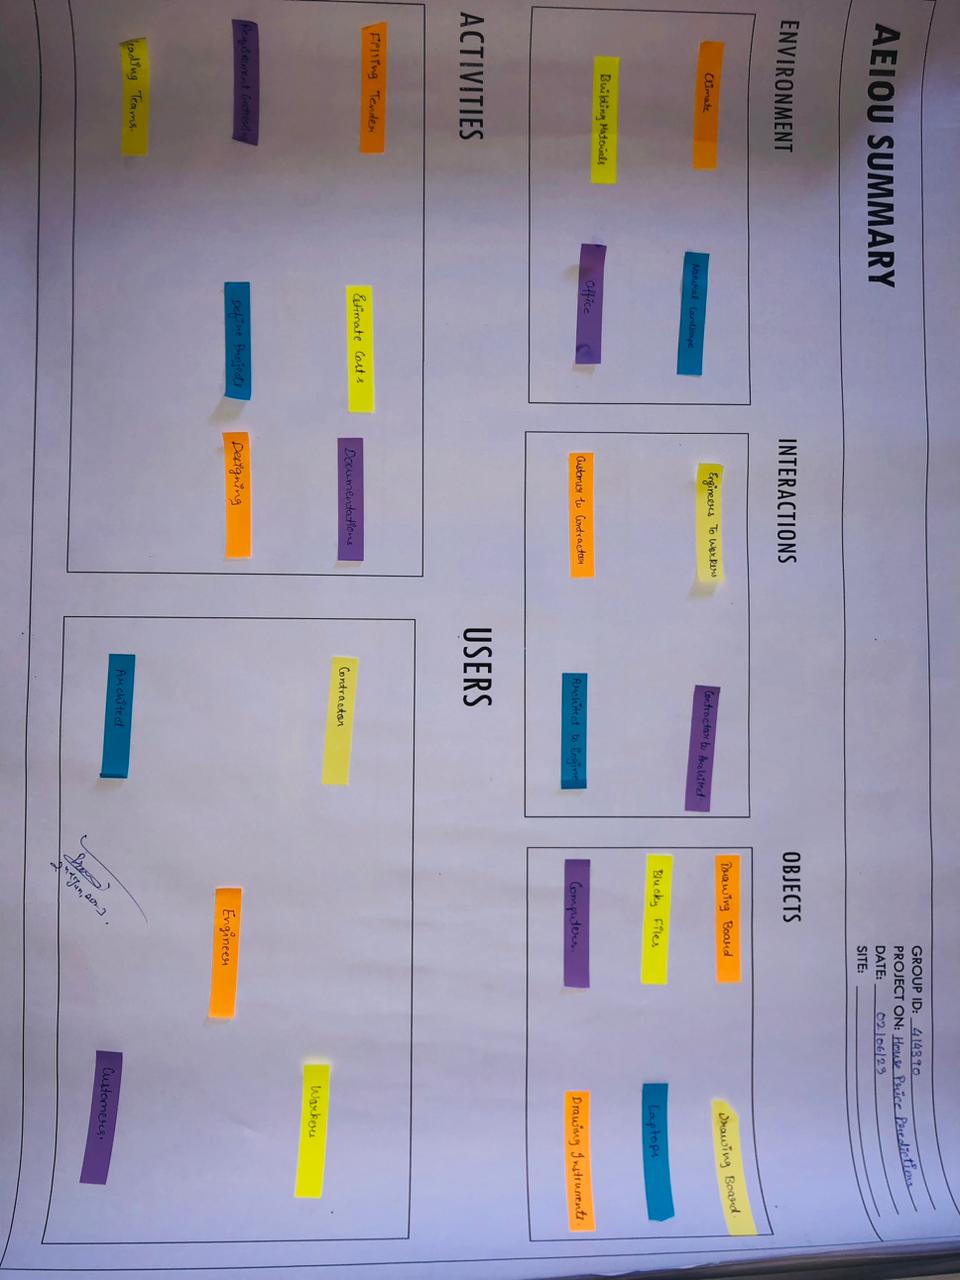 AEIOU SUMMARY
GROUP ID: 414390
PROJECT ON: House Price Prediction
DATE: 02/06/23
SITE:
ENVIRONMENT
Climate
Natural Landscape
Building Materials
Office
INTERACTIONS
Engineers To Workers
Contractor to Architect
Customer to Contractor
Architect to Engine
OBJECTS
Drawing Board
Drawing Board.
Blucky Files
Laptops
Computers.
Drawing Instruments.
ACTIVITIES
Filling Tender
Estimate Costs
Documentations
Requirement
Define Projects
Designing
eading Teams.
USERS
Contractor
Workers
Engineer
Architect
Customers.